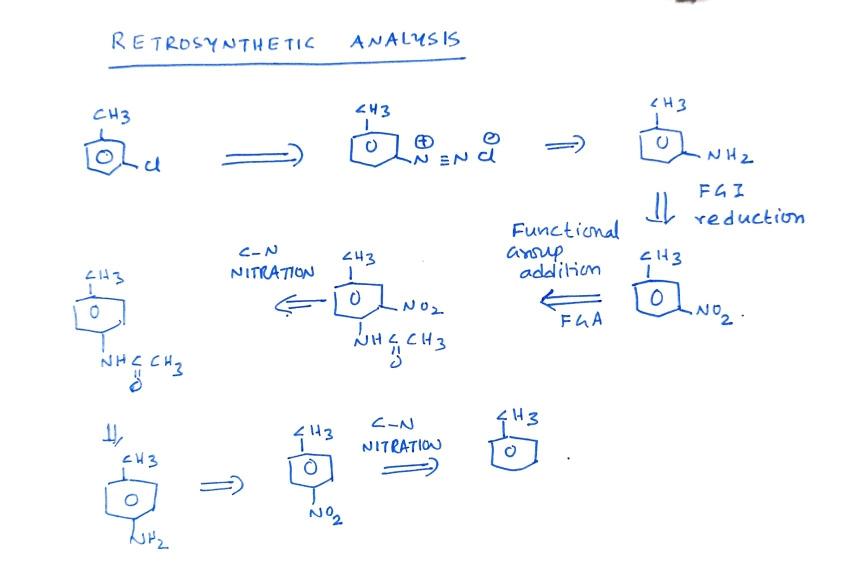 RETROSYNTHETIC ANALYSIS
CH3
Cl
CH3
⊕
N≡N Cl
⊖
CH3
NH2
FGI
reduction
CH3
NO2.
Functional
Group
addition
FGA
CH3
NO2
NHCCH3
O
C-N
NITRATION
CH3
NHCCH3
O
CH3
NH2
CH3
NO2
C-N
NITRATION
CH3